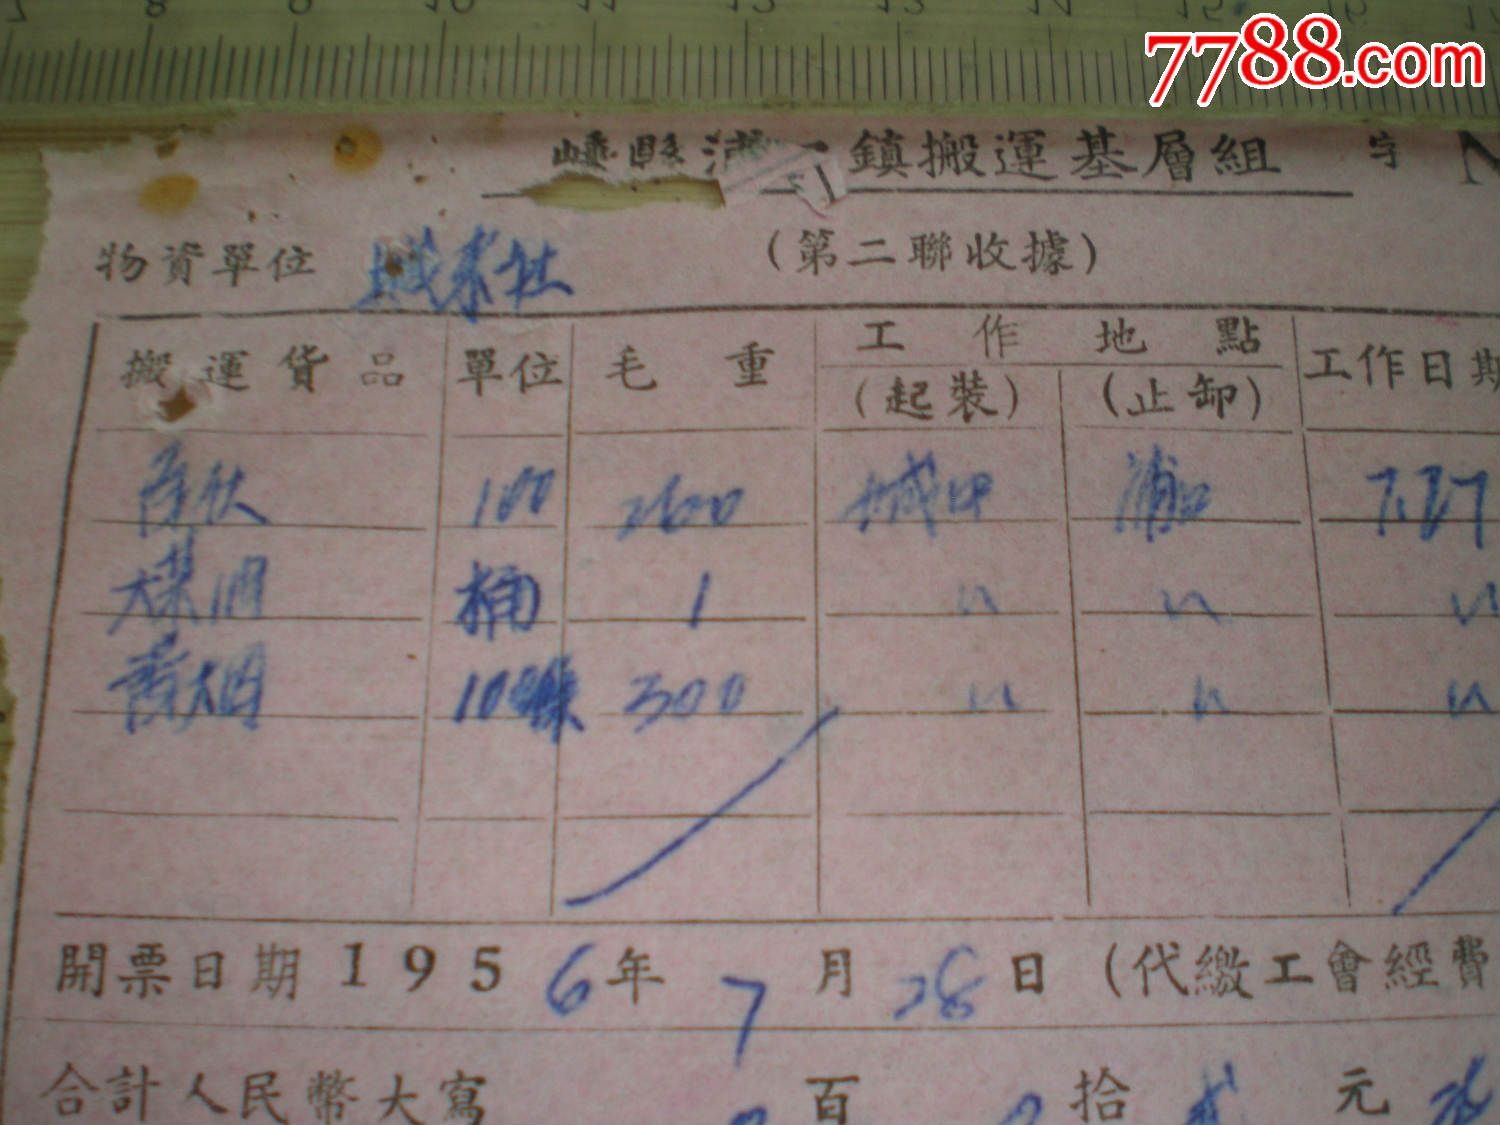 7 8 9 10 11 12 13 14 15 16
7788.com
嵊縣浦口鎮搬運基層組 字 N
物資單位 城東社 (第二聯收據)
搬運貨品 單位 毛重 工作地點 工作日期
(起裝) (止卸)
100 2600 城中 浦口 7.27
桶 1 〃 〃 〃
100 300 〃 〃 〃
開票日期195 6年 7月 28日 (代繳工會經費
合計人民幣大寫 百 拾 元